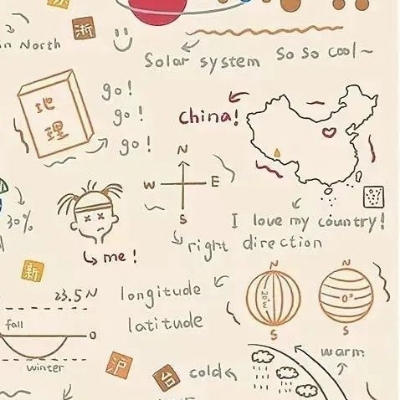 in North
浙
Solar system
So So cool~
地
理
go!
go!
go!
China!
N
W E
S
I love my country!
right direction
30%
me!
新
23.5 N
longitude
latitude
N
120°E
S
N
0°
S
fall
0
winter
沪
台
cold
warm